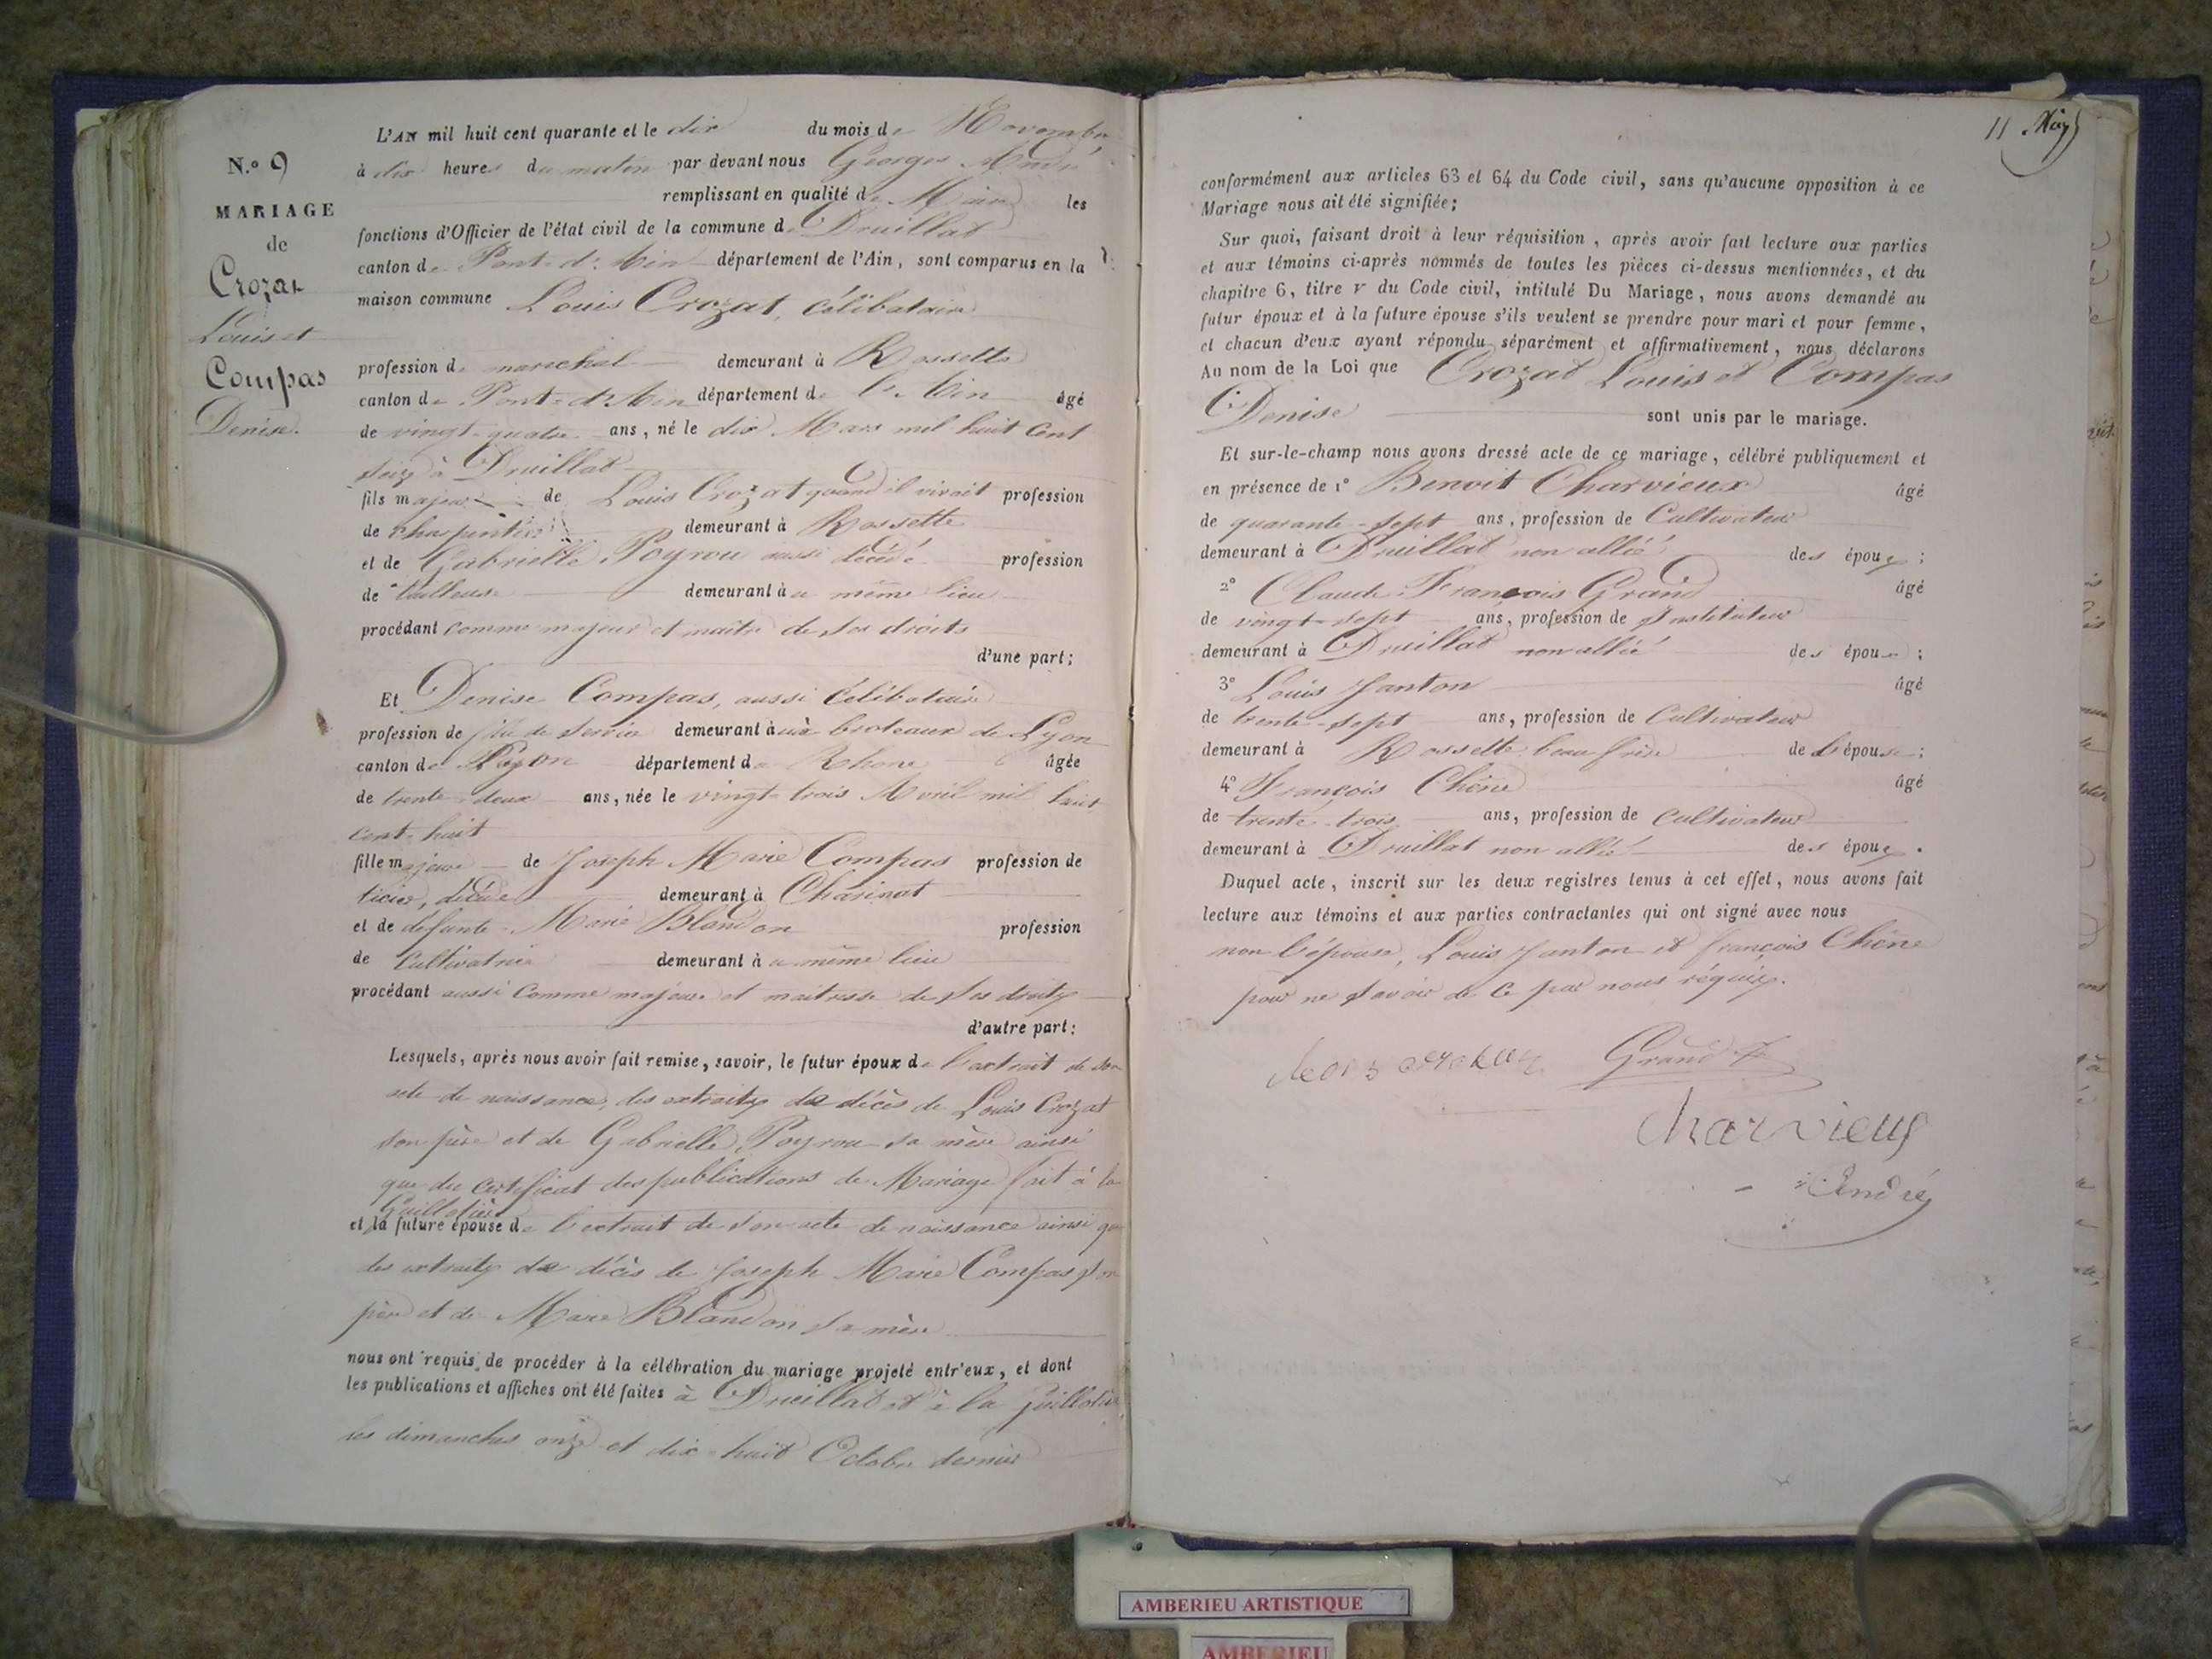 N.º 9
MARIAGE
de
Crozat
Louis et
Compas
Denise.
L'AN mil huit cent quarante et le dix du mois de Novembre
à dix heures du matin par devant nous Georges André
remplissant en qualité de Maire les
fonctions d'Officier de l'état civil de la commune de Druillat
canton de Pont-d'Ain département de l'Ain, sont comparus en la
maison commune Louis Crozat, célibataire
profession de marechal demeurant à Rossette
canton de Pont-d'Ain département de l'Ain âgé
de vingt-quatre ans, né le dix Mars mil huit cent
seize à Druillat
fils majeur de Louis Crozat quand il vivait profession
de charpentier demeurant à Rossette
et de Gabrielle Poyrou aussi décédé profession
de tailleuse demeurant à u même lieu
procédant comme majeur et maître de ses droits
d'une part;
Et Denise Compas, aussi célibataire
profession de fille de service demeurant à ux broteaux de Lyon
canton de Lyon département du Rhone âgée
de trente-deux ans, née le vingt-trois Avril mil huit
cent-huit
fille majeure de Joseph Marie Compas profession de
décédé demeurant à Charinat
et de defunte Marie Blandon profession
de Cultivatrice demeurant à u même lieu
procédant aussi comme majeure et maitresse de ses droits
d'autre part:
Lesquels, après nous avoir fait remise, savoir, le futur époux de l'extrait de son
acte de naissance, des extraits de décès de Louis Crozat
son père et de Gabrielle Poyrou sa mère ainsi
que du certificat des publications de Mariage fait à la
Guillotière
et la future épouse de l'extrait de son acte de naissance ainsi que
des extraits de décès de Joseph Marie Compas son
père et de Marie Blandon sa mère
nous ont requis de procéder à la célébration du mariage projeté entr'eux, et dont
les publications et affiches ont été faites à Druillat et à la Guillotière
les dimanches onze et dix-huit Octobre dernier
11
conformément aux articles 63 et 64 du Code civil, sans qu'aucune opposition à ce
Mariage nous ait été signifiée;
Sur quoi, faisant droit à leur réquisition, après avoir fait lecture aux parties
et aux témoins ci-après nommés de toutes les pièces ci-dessus mentionnées, et du
chapitre 6, titre V du Code civil, intitulé Du Mariage, nous avons demandé au
futur époux et à la future épouse s'ils veulent se prendre pour mari et pour femme,
et chacun d'eux ayant répondu séparément et affirmativement, nous déclarons
Au nom de la Loi que Crozat Louis et Compas
Denise sont unis par le mariage.
Et sur-le-champ nous avons dressé acte de ce mariage, célébré publiquement et
en présence de 1º Benoit Charvieux âgé
de quarante-sept ans, profession de Cultivateur
demeurant à Druillat non allié des époux;
2º Claude François Grand âgé
de vingt-sept ans, profession de Instituteur
demeurant à Druillat non allié des époux;
3º Louis Janton âgé
de trente-sept ans, profession de Cultivateur
demeurant à Rossette beau frère de l'épouse;
4º François Chêne âgé
de trente-trois ans, profession de Cultivateur
demeurant à Druillat non allié des époux.
Duquel acte, inscrit sur les deux registres tenus à cet effet, nous avons fait
lecture aux témoins et aux parties contractantes qui ont signé avec nous
non l'épouse, Louis Janton et François Chêne
pour ne savoir de ce par nous réquis.
Grand
Charvieux
André
AMBERIEU ARTISTIQUE
AMBERIEU